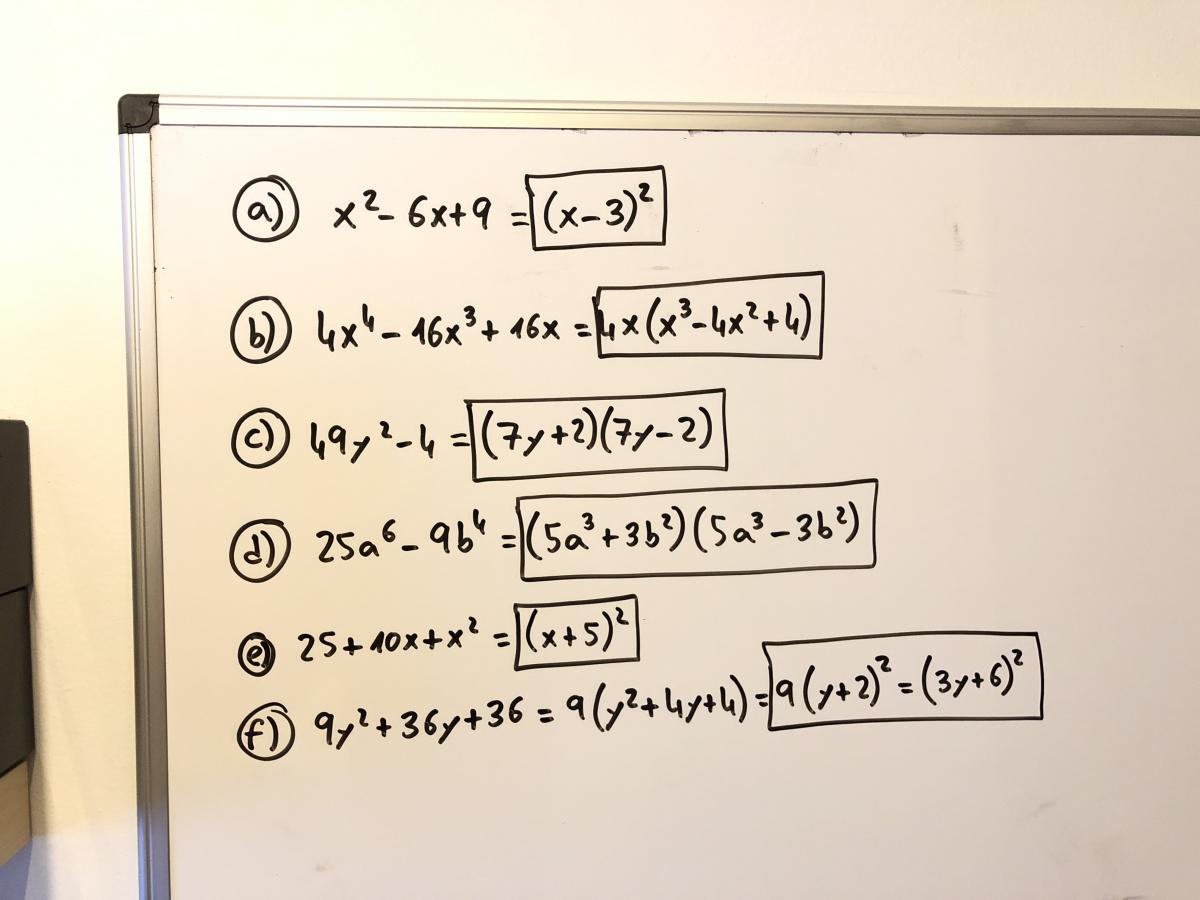 a) x² - 6x + 9 = (x - 3)²
b) 4x⁴ - 16x³ + 16x = 4x(x³ - 4x² + 4)
c) 49y² - 4 = (7y + 2)(7y - 2)
d) 25a⁶ - 9b⁴ = (5a³ + 3b²)(5a³ - 3b²)
e) 25 + 10x + x² = (x + 5)²
f) 9y² + 36y + 36 = 9(y² + 4y + 4) = 9(y + 2)² = (3y + 6)²